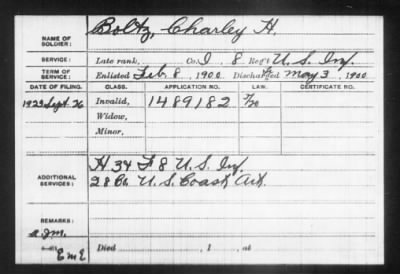 NAME OF SOLDIER: Boltz, Charley H.
SERVICE: Late rank, Co. I, 8 Reg't U. S. Inf.
TERM OF SERVICE: Enlisted Feb. 8, 1900 Discharged May 3, 1900
DATE OF FILING. CLASS. APPLICATION NO. LAW. CERTIFICATE NO.
1923 Sept. 26 Invalid, 1489182
Widow,
Minor,
ADDITIONAL SERVICES: H 34 F 8 U. S. Inf.
28 Co. U. S. Coast Art.
REMARKS:
E m E Died , 1 , at